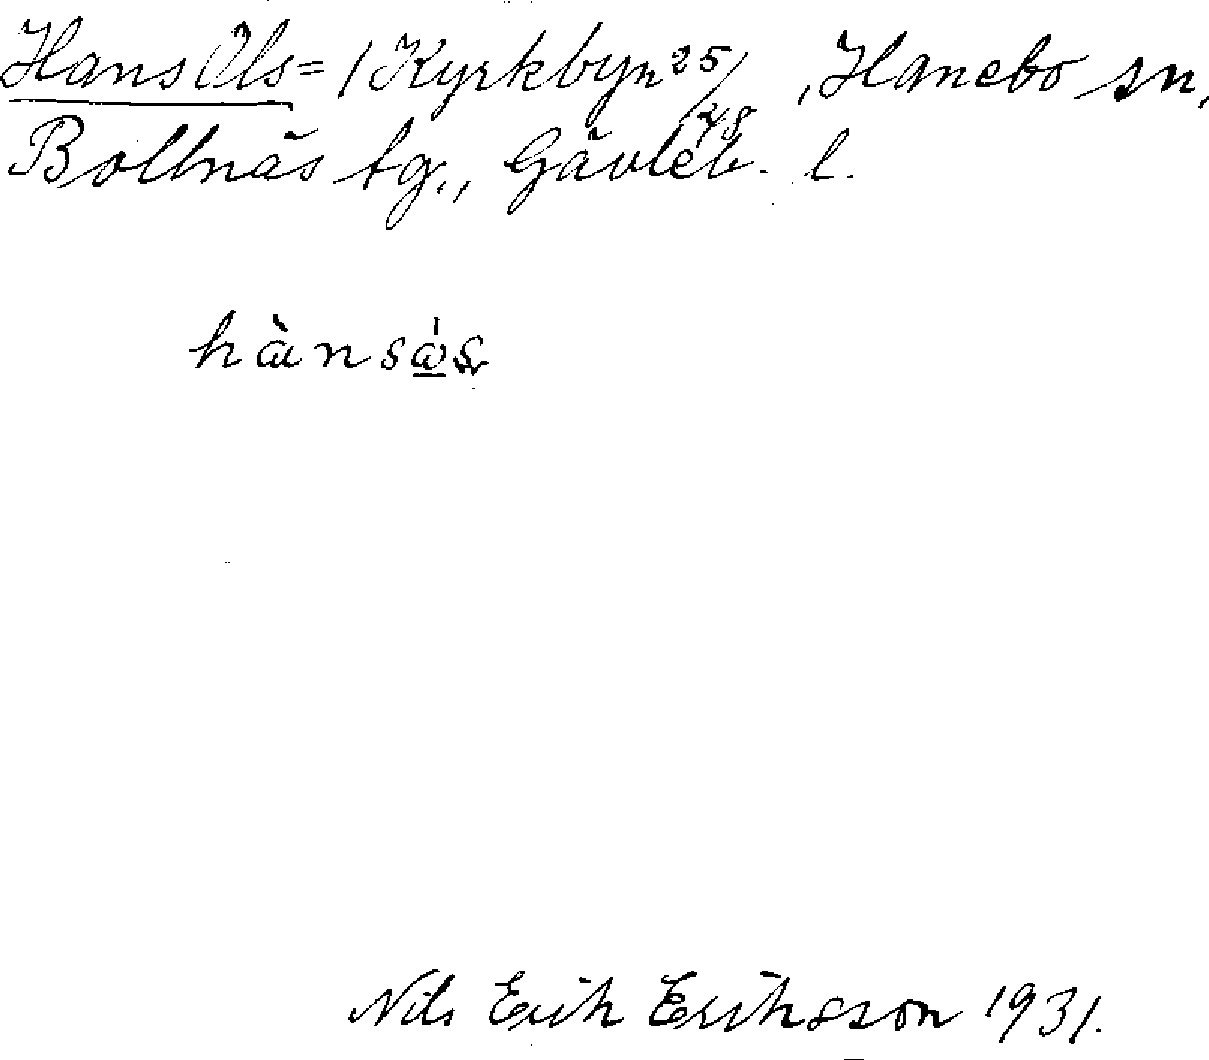 Hans Ols= / Kyrkbyn 25/28, Hanebo sn,
Bollnäs tg., Gävleb. l.
hànsás
Nils Erik Eriksson 1931.